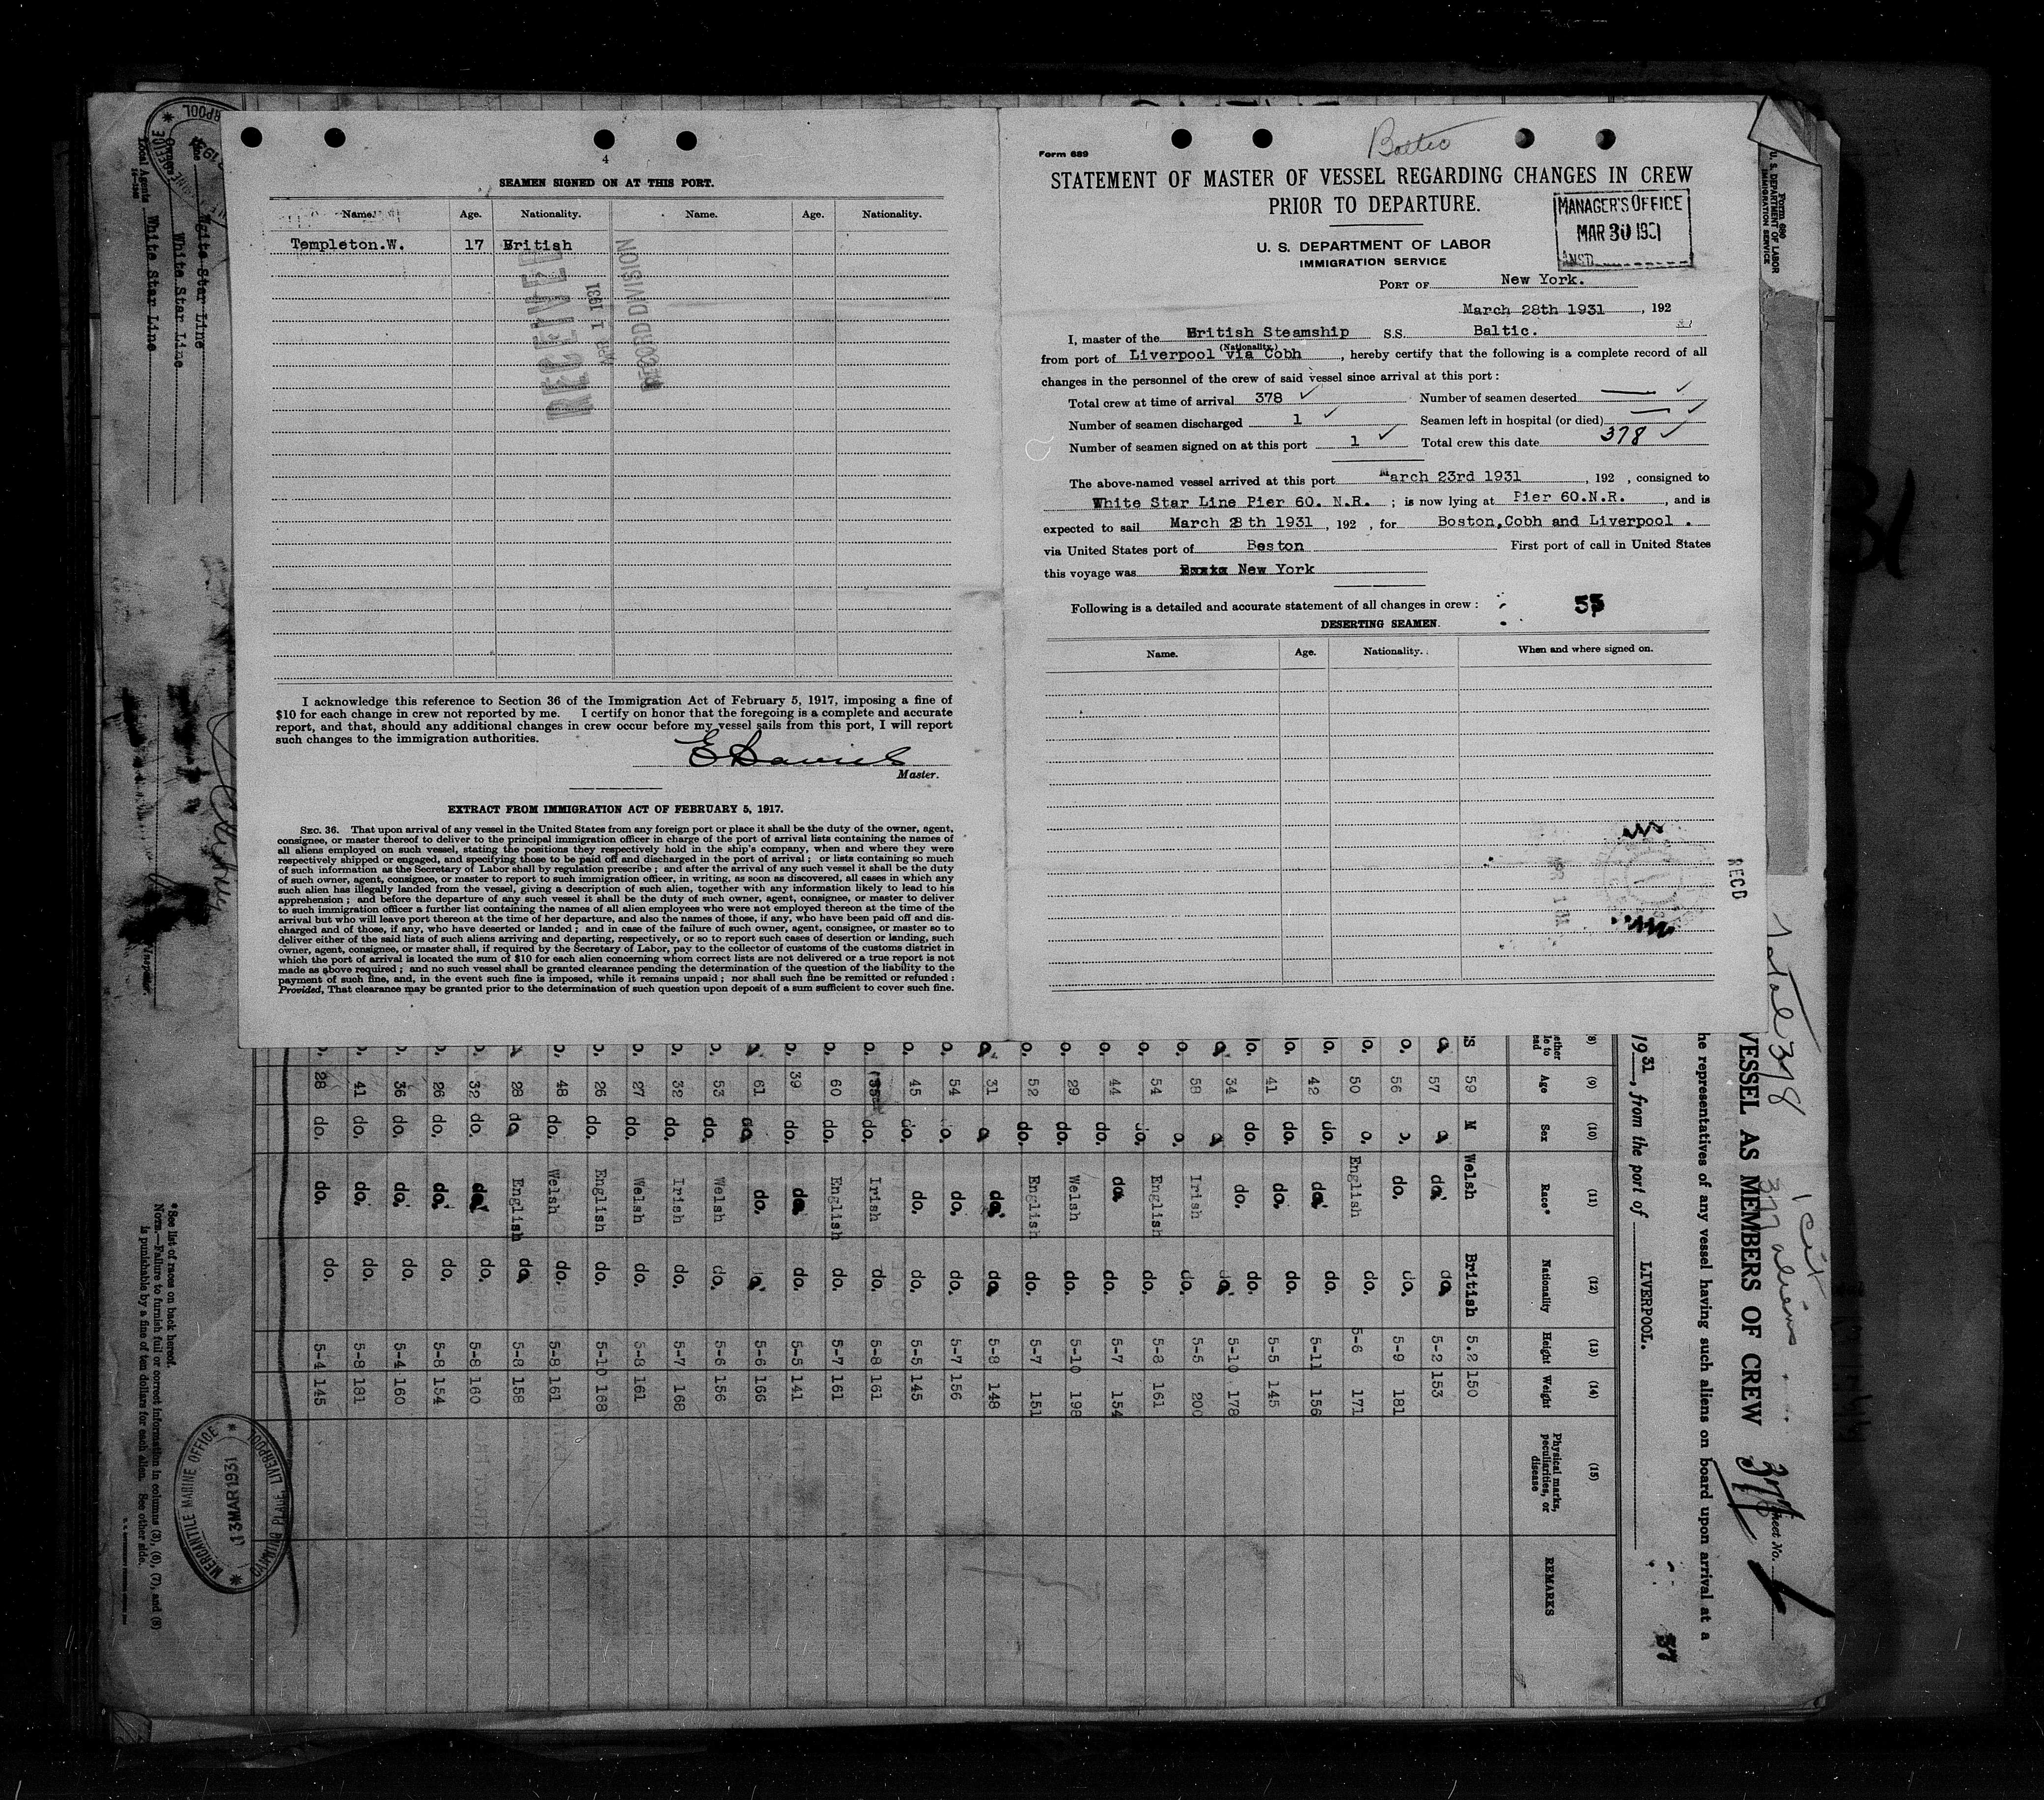 4
SEAMEN SIGNED ON AT THIS PORT.
Name. Age. Nationality. Name. Age. Nationality.
Templeton.W. 17 British
RECEIVED
APR 1 1931
RECORD DIVISION
I acknowledge this reference to Section 36 of the Immigration Act of February 5, 1917, imposing a fine of
$10 for each change in crew not reported by me. I certify on honor that the foregoing is a complete and accurate
report, and that, should any additional changes in crew occur before my vessel sails from this port, I will report
such changes to the immigration authorities.
E Davies
Master.
EXTRACT FROM IMMIGRATION ACT OF FEBRUARY 5, 1917.
SEC. 36. That upon arrival of any vessel in the United States from any foreign port or place it shall be the duty of the owner, agent,
consignee, or master thereof to deliver to the principal immigration officer in charge of the port of arrival lists containing the names of
all aliens employed on such vessel, stating the positions they respectively hold in the ship's company, when and where they were
respectively shipped or engaged, and specifying those to be paid off and discharged in the port of arrival; or lists containing so much
of such information as the Secretary of Labor shall by regulation prescribe; and after the arrival of any such vessel it shall be the duty
of such owner, agent, consignee, or master to report to such immigration officer, in writing, as soon as discovered, all cases in which any
such alien has illegally landed from the vessel, giving a description of such alien, together with any information likely to lead to his
apprehension; and before the departure of any such vessel it shall be the duty of such owner, agent, consignee, or master to deliver
to such immigration officer a further list containing the names of all alien employees who were not employed thereon at the time of the
arrival but who will leave port thereon at the time of her departure, and also the names of those, if any, who have been paid off and dis-
charged and of those, if any, who have deserted or landed; and in case of the failure of such owner, agent, consignee, or master so to
deliver either of the said lists of such aliens arriving and departing, respectively, or so to report such cases of desertion or landing, such
owner, agent, consignee, or master shall, if required by the Secretary of Labor, pay to the collector of customs of the customs district in
which the port of arrival is located the sum of $10 for each alien concerning whom correct lists are not delivered or a true report is not
made as above required; and no such vessel shall be granted clearance pending the determination of the question of the liability to the
payment of such fine, and, in the event such fine is imposed, while it remains unpaid; nor shall such fine be remitted or refunded:
Provided, That clearance may be granted prior to the determination of such question upon deposit of a sum sufficient to cover such fine.
Form 689
Baltic
STATEMENT OF MASTER OF VESSEL REGARDING CHANGES IN CREW
PRIOR TO DEPARTURE.
MANAGER'S OFFICE
MAR 30 1931
ANSD.
U. S. DEPARTMENT OF LABOR
IMMIGRATION SERVICE
PORT OF New York.
March 28th 1931, 192
I, master of the British Steamship S.S. Baltic.
(Nationality.)
from port of Liverpool via Cobh, hereby certify that the following is a complete record of all
changes in the personnel of the crew of said vessel since arrival at this port:
Total crew at time of arrival 378 ✓ Number of seamen deserted — ✓
Number of seamen discharged 1 ✓ Seamen left in hospital (or died) — ✓
Number of seamen signed on at this port 1 ✓ Total crew this date 378 ✓
The above-named vessel arrived at this port March 23rd 1931, 192 , consigned to
White Star Line Pier 60. N.R. ; is now lying at Pier 60.N.R., and is
expected to sail March 28 th 1931, 192 , for Boston,Cobh and Liverpool .
via United States port of Boston First port of call in United States
this voyage was New York
Following is a detailed and accurate statement of all changes in crew:
DESERTING SEAMEN.
Name. Age. Nationality. When and where signed on.
RECD
Form 680
U. S. DEPARTMENT OF LABOR
IMMIGRATION SERVICE
Total 378
1 Cit
377 aliens
VESSEL AS MEMBERS OF CREW
Sheet No.
he representatives of any vessel having such aliens on board upon arrival at a
1931, from the port of LIVERPOOL.
37
(8) (9) (10) (11) (12) (13) (14) (15)
Age Sex Race* Nationality Height Weight Physical marks, peculiarities, or disease REMARKS
59 M Welsh British 5.2 150
57 do. do. 5-2 153
56 do. do. 5-9 181
50 English do. 5-6 171
42 do. do. do. 5-11 156
41 do. do. do. 5-5 145
34 do. do. 5-10 178
58 Irish do. 5-5 200
54 do. English do. 5-8 161
44 do. do. do. 5-7 154
29 do. Welsh do. 5-10 198
52 do. English do. 5-7 151
31 do. do. 5-8 148
54 do. do. do. 5-7 156
45 do. do. do. 5-5 145
do. Irish do. 5-8 161
60 do. English do. 5-7 161
39 do. do. do. 5-5 141
61 do. do. 5-6 166
53 do. Welsh do. 5-6 156
32 do. Irish do. 5-7 168
27 do. Welsh do. 5-8 161
26 do. English do. 5-10 168
48 do. Welsh do. 5-8 161
28 do. English do. 5-8 158
32 do. do. do. 5-8 160
26 do. do. do. 5-8 154
36 do. do. do. 5-4 160
41 do. do. do. 5-8 181
28 do. do. do. 5-4 145
*See list of races on back hereof.
NOTE.—Failure to furnish full or correct information in columns (3), (6), (7), and (8)
is punishable by a fine of ten dollars for each alien. See other side.
MERCANTILE MARINE OFFICE
13 MAR 1931
CANNING PLACE, LIVERPOOL
White Star Line
Owners White Star Line
Local Agents White Star Line